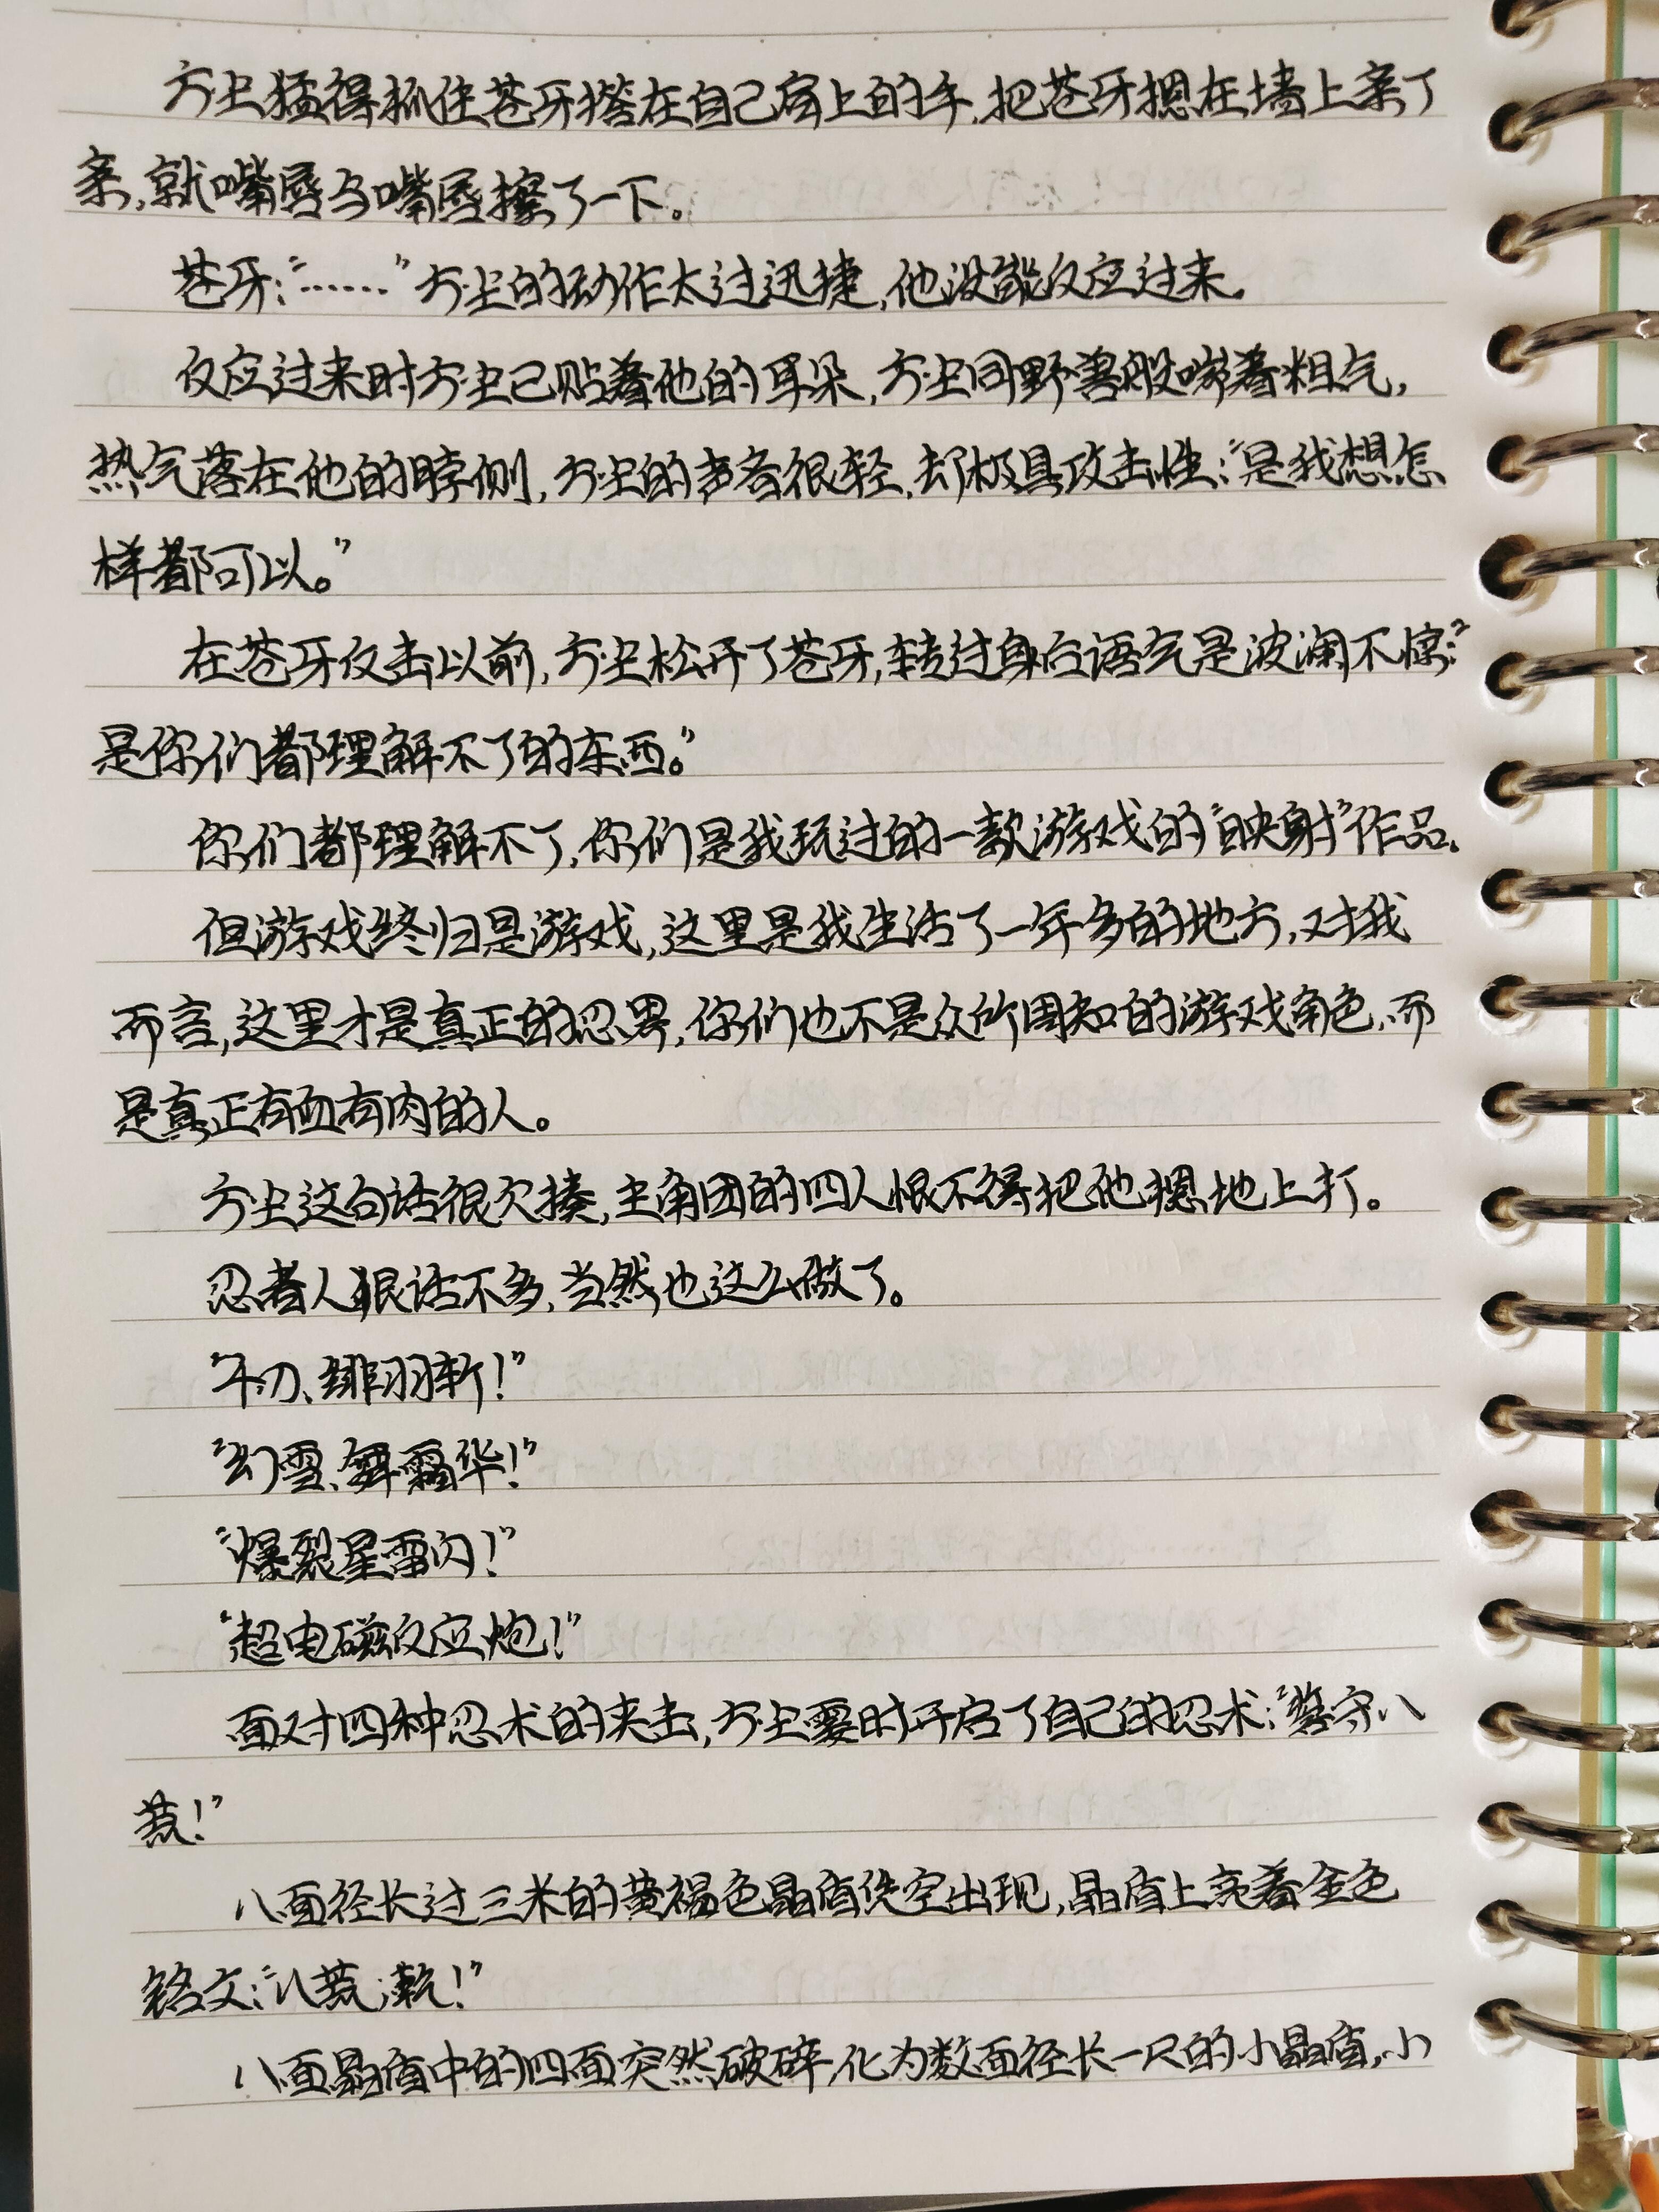 方尘猛得抓住苍牙搭在自己肩上的手,把苍牙摁在墙上亲了
亲,就嘴唇与嘴唇擦了一下。
苍牙:“……”方尘的动作太过迅捷,他没能反应过来。
反应过来时方尘已贴着他的耳朵,方尘同野兽般喘着粗气,
热气落在他的脖侧,方尘的声音很轻,却极具攻击性:“是我想怎
样都可以。”
在苍牙反击以前,方尘松开了苍牙,转过身后语气是波澜不惊:“
是你们都理解不了的东西。”
你们都理解不了,你们是我玩过的一款游戏的“映射”作品。
但游戏终归是游戏,这里是我生活了一年多的地方,对我
而言,这里才是真正的忍界,你们也不是众所周知的游戏角色,而
是真正有血有肉的人。
方尘这句话很欠揍,主角团的四人恨不得把他摁地上打。
忍者人狠话不多,当然也这么做了。
“千刃、绯羽斩!”
“幻雪、舞霜华!”
“爆裂星雷闪!”
“超电磁反应炮!”
面对四种忍术的夹击,方尘霎时开启了自己的忍术:“御守八
荒!”
八面径长过三米的黄褐色晶盾凭空出现,晶盾上亮着金色
铭文:“八荒,乾!”
八面晶盾中的四面突然破碎,化为数面径长一尺的小晶盾,小